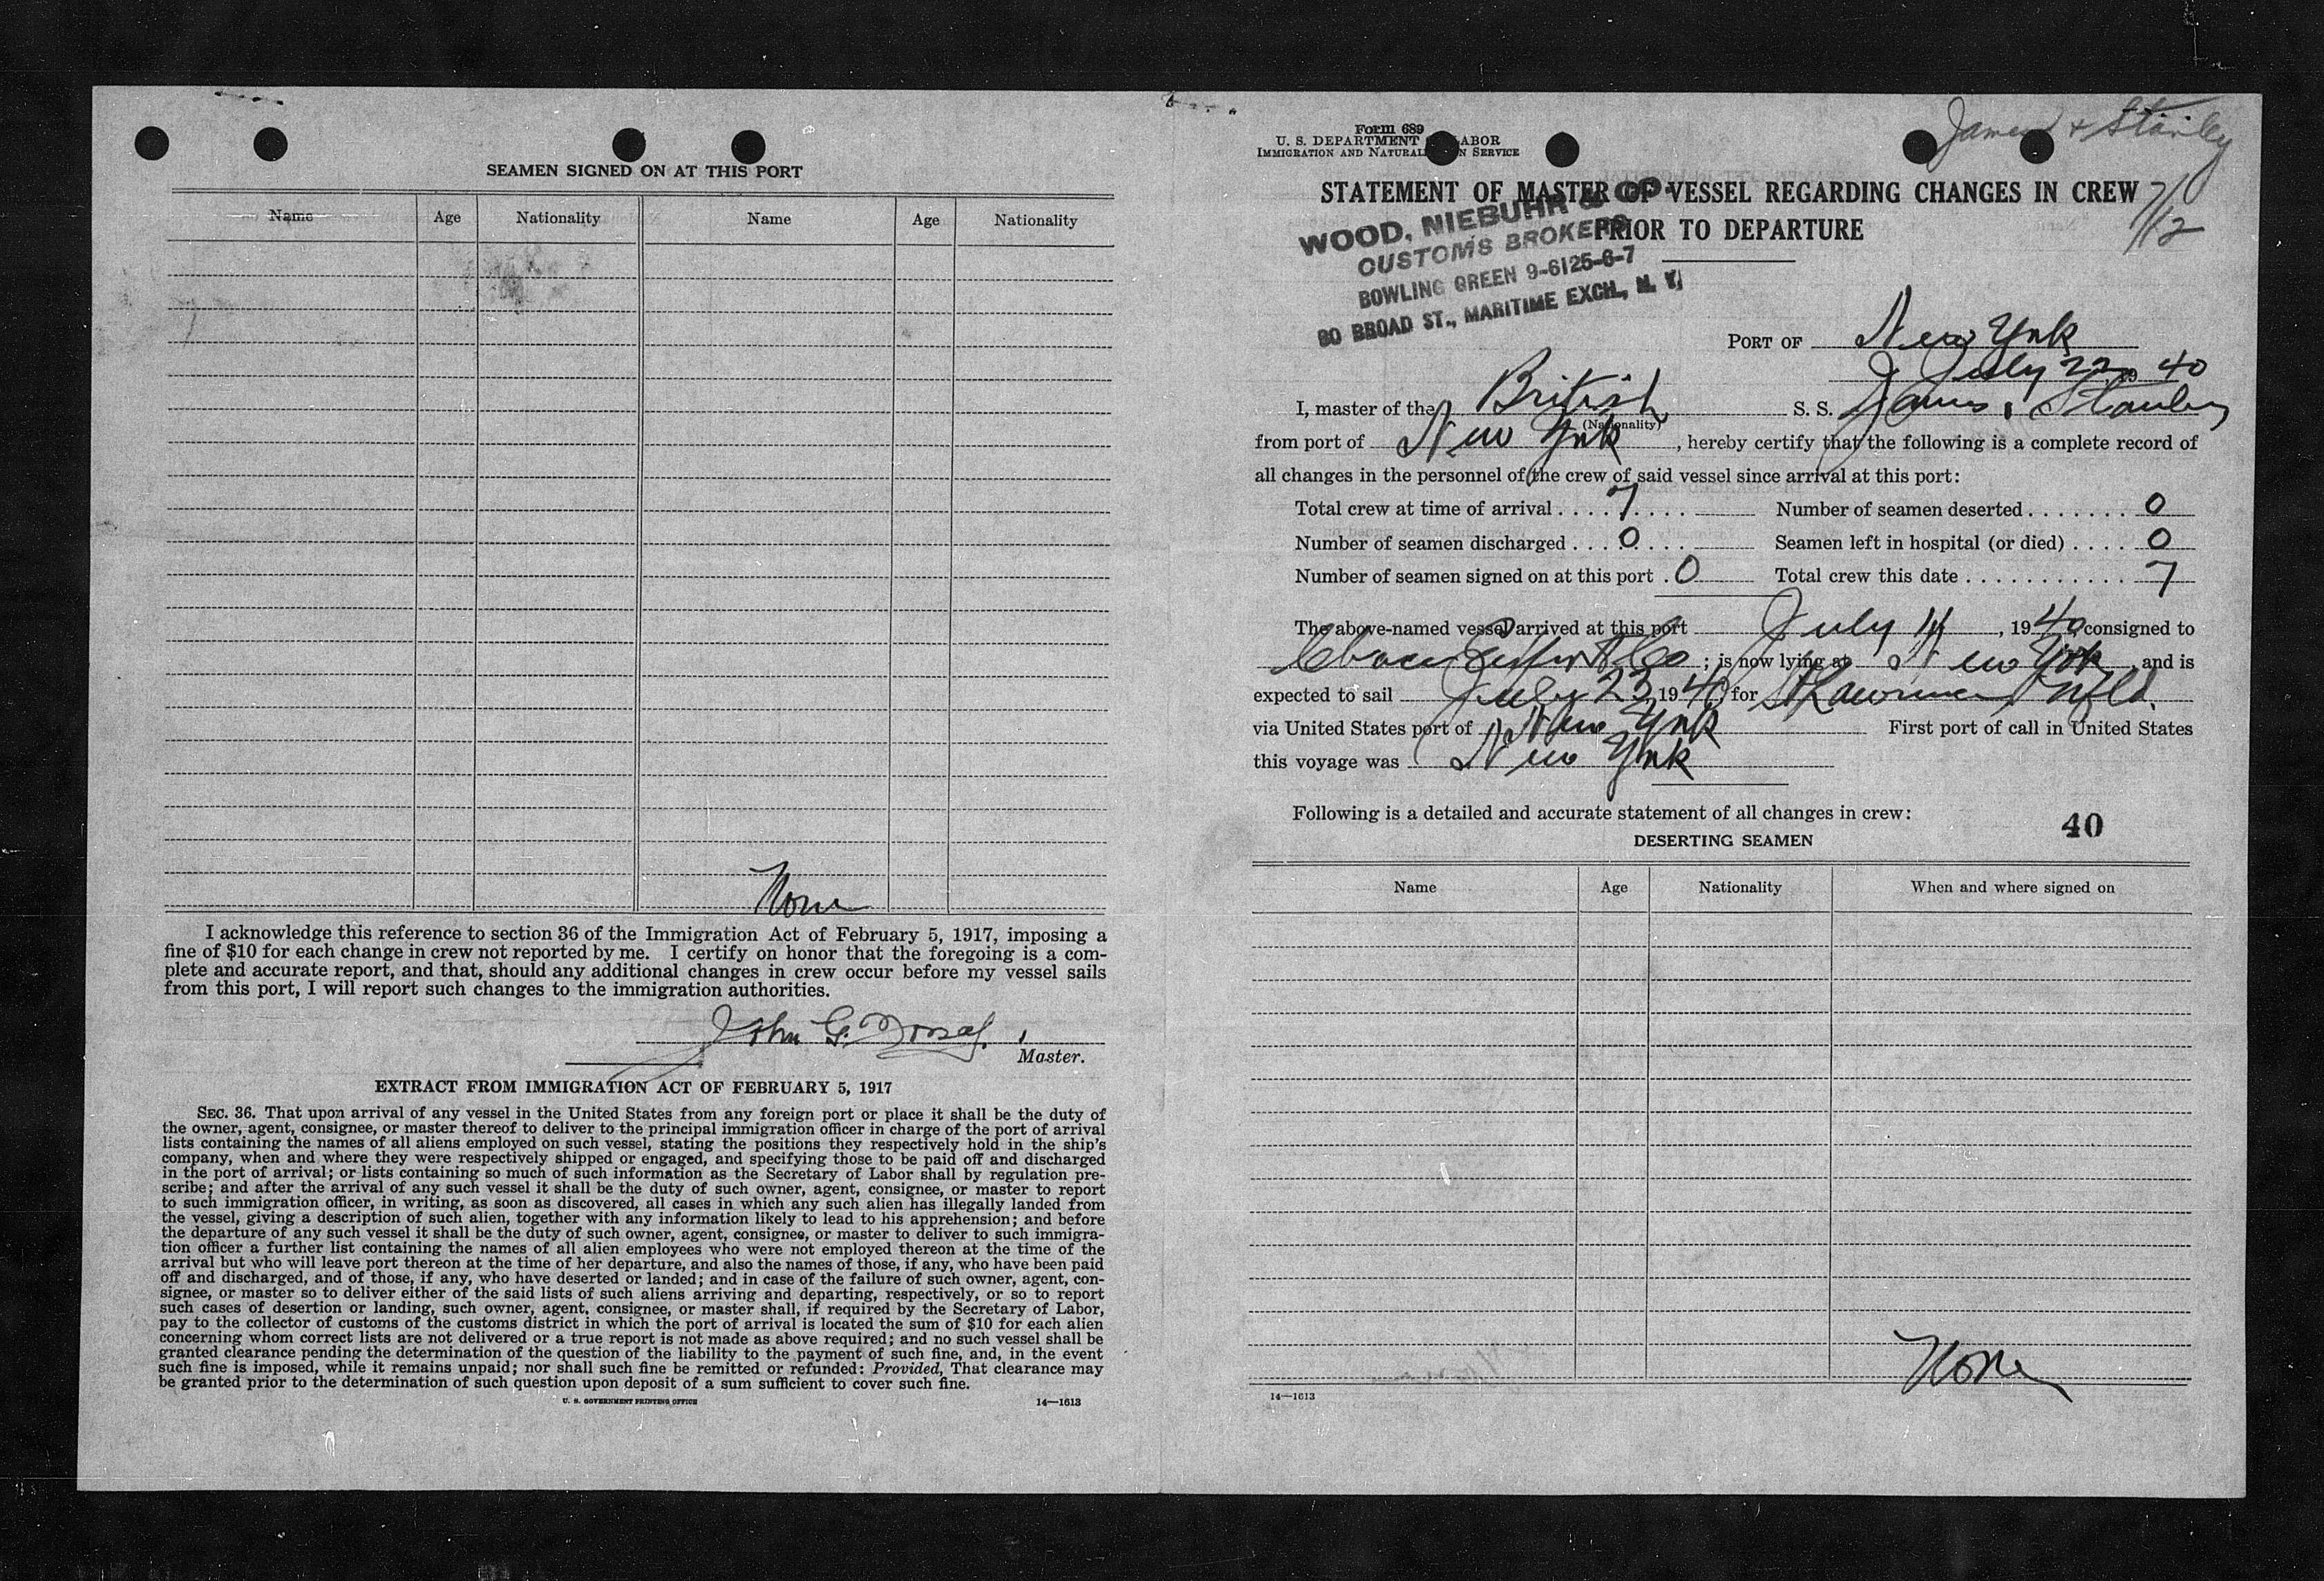 SEAMEN SIGNED ON AT THIS PORT
Name Age Nationality Name Age Nationality
None
I acknowledge this reference to section 36 of the Immigration Act of February 5, 1917, imposing a
fine of $10 for each change in crew not reported by me. I certify on honor that the foregoing is a com-
plete and accurate report, and that, should any additional changes in crew occur before my vessel sails
from this port, I will report such changes to the immigration authorities.
John G.
Master.
EXTRACT FROM IMMIGRATION ACT OF FEBRUARY 5, 1917
SEC. 36. That upon arrival of any vessel in the United States from any foreign port or place it shall be the duty of
the owner, agent, consignee, or master thereof to deliver to the principal immigration officer in charge of the port of arrival
lists containing the names of all aliens employed on such vessel, stating the positions they respectively hold in the ship's
company, when and where they were respectively shipped or engaged, and specifying those to be paid off and discharged
in the port of arrival; or lists containing so much of such information as the Secretary of Labor shall by regulation pre-
scribe; and after the arrival of any such vessel it shall be the duty of such owner, agent, consignee, or master to report
to such immigration officer, in writing, as soon as discovered, all cases in which any such alien has illegally landed from
the vessel, giving a description of such alien, together with any information likely to lead to his apprehension; and before
the departure of any such vessel it shall be the duty of such owner, agent, consignee, or master to deliver to such immigra-
tion officer a further list containing the names of all alien employees who were not employed thereon at the time of the
arrival but who will leave port thereon at the time of her departure, and also the names of those, if any, who have been paid
off and discharged, and of those, if any, who have deserted or landed; and in case of the failure of such owner, agent, con-
signee, or master so to deliver either of the said lists of such aliens arriving and departing, respectively, or so to report
such cases of desertion or landing, such owner, agent, consignee, or master shall, if required by the Secretary of Labor,
pay to the collector of customs of the customs district in which the port of arrival is located the sum of $10 for each alien
concerning whom correct lists are not delivered or a true report is not made as above required; and no such vessel shall be
granted clearance pending the determination of the question of the liability to the payment of such fine, and, in the event
such fine is imposed, while it remains unpaid; nor shall such fine be remitted or refunded: Provided, That clearance may
be granted prior to the determination of such question upon deposit of a sum sufficient to cover such fine.
U. S. GOVERNMENT PRINTING OFFICE 14—1613
James & Stanley
7/12
Form 689
U. S. DEPARTMENT LABOR
IMMIGRATION AND NATURALIZATION SERVICE
STATEMENT OF MASTER OF VESSEL REGARDING CHANGES IN CREW
PRIOR TO DEPARTURE
WOOD, NIEBUHR & CO.
CUSTOMS BROKERS
BOWLING GREEN 9-6125-6-7
80 BROAD ST., MARITIME EXCH., N. Y.
PORT OF New York
July 22 1940
I, master of the British S. S. James & Stanley
(Nationality)
from port of New York, hereby certify that the following is a complete record of
all changes in the personnel of the crew of said vessel since arrival at this port:
Total crew at time of arrival .... 7 .... Number of seamen deserted ....... 0
Number of seamen discharged .... 0 .... Seamen left in hospital (or died) .... 0
Number of seamen signed on at this port . 0 Total crew this date ............ 7
The above-named vessel arrived at this port July 11, 1940 consigned to
Co; is now lying at New York, and is
expected to sail July 23, 1940, for St Lawrence Nfld.
via United States port of New York First port of call in United States
this voyage was New York
Following is a detailed and accurate statement of all changes in crew:
40
DESERTING SEAMEN
Name Age Nationality When and where signed on
None
14—1613